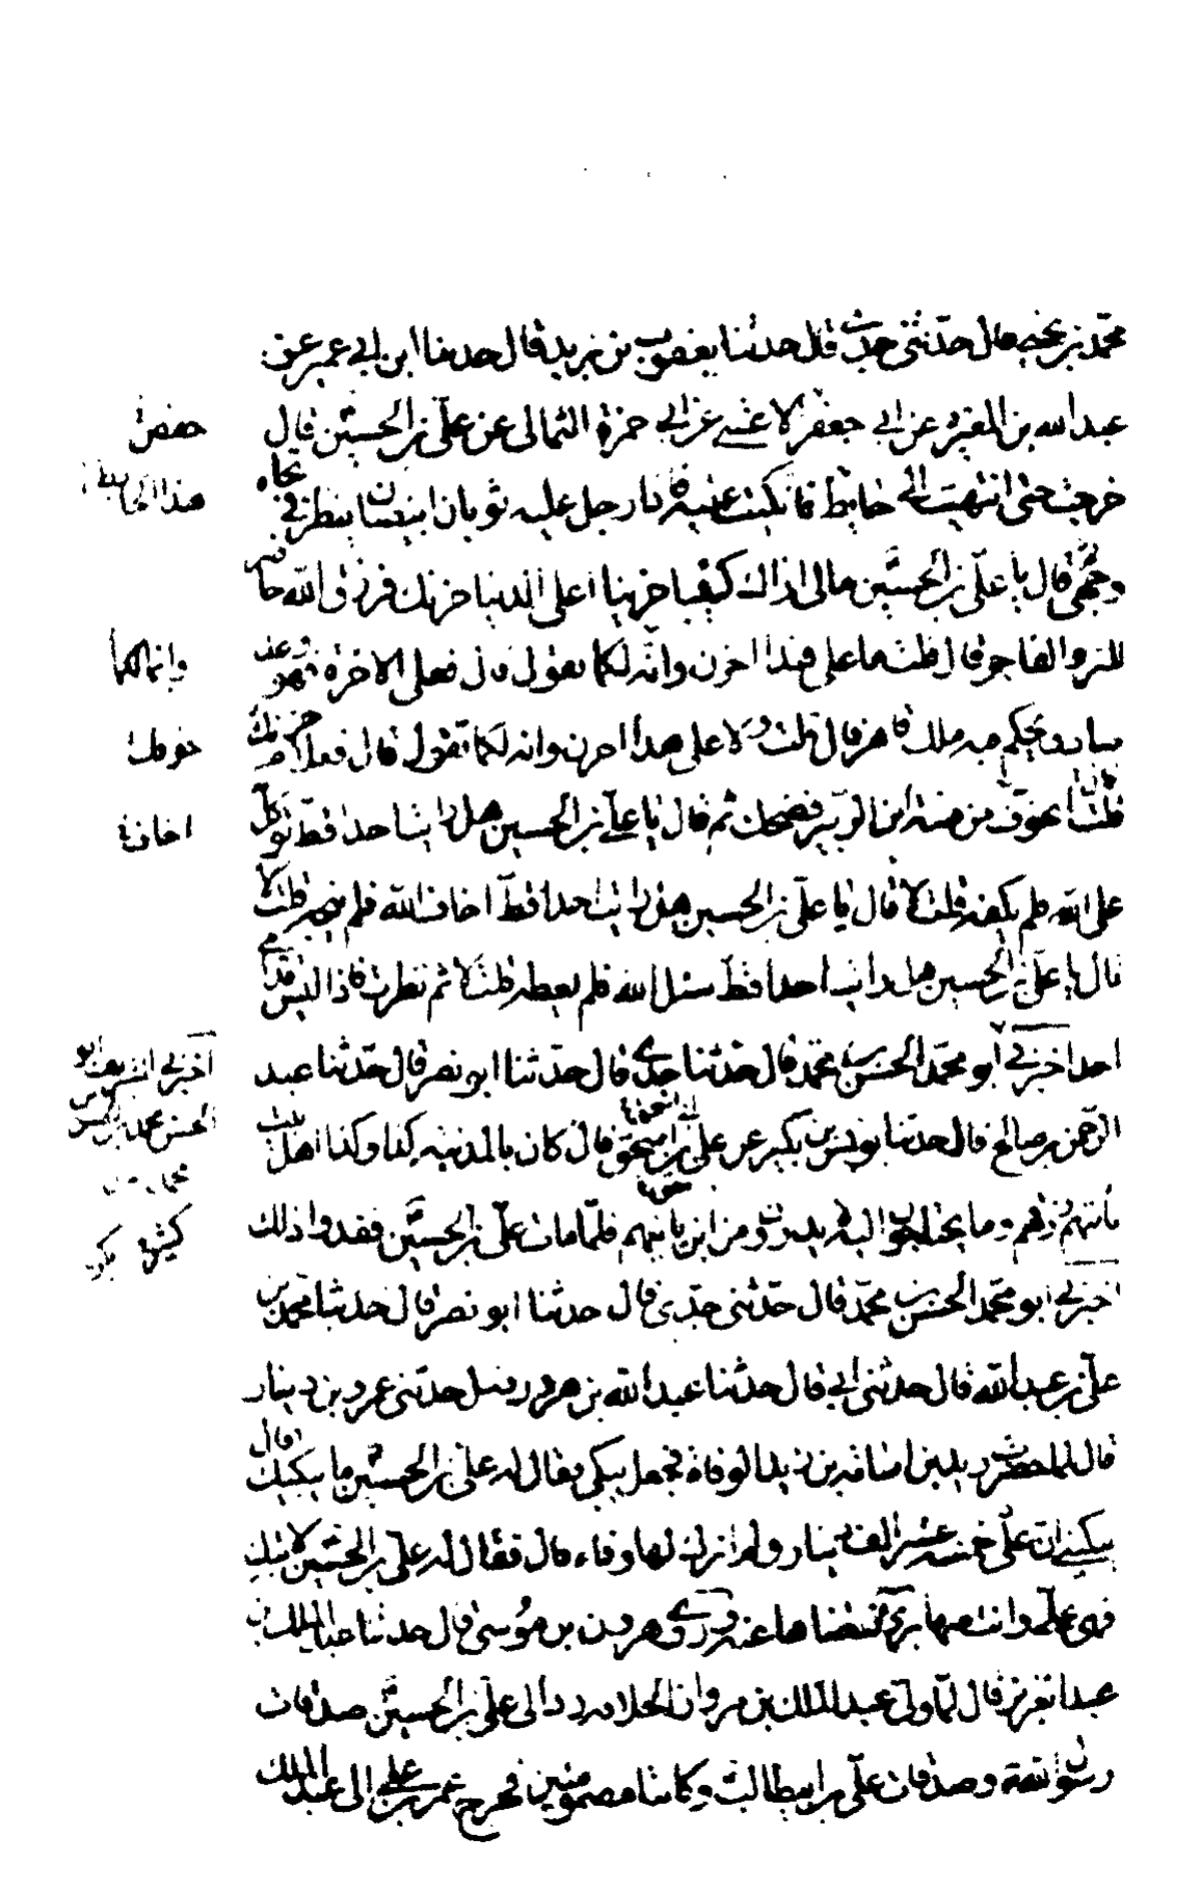 محمد بن يحيى قال حدثني جدي قال حدثنا يعقوب بن يزيد قال حدثنا ابن ابي عمير عن
عبد الله بن المغيره عن ابي جعفر الاعشى عن ابي حمزة الثمالى عن علي بن الحسين قال
خرجت حتى انتهيت الى حايط فاتكيت عليه فاذا رجل عليه ثوبان ابيضان ينظر في تجاه
وجهى قال يا علي بن الحسين مالى اراك كئيبا حزينا اعلى الدنيا حزنك فرزق الله حاضر
للبر والفاجر قال قلت ما على هذا احزن وانه لكما تقول قال فعلى الاخرة فهو وعد
صادق يحكم فيه ملك قاهر قال قلت ولا على هذا احزن وانه لكما تقول قال فعلام حزنك
قال قلت اتخوف من فتنة ابن الزبير فضحك ثم قال يا علي بن الحسين هل رايت احدا قط توكل
على الله فلم يكفه قلت لا قال يا علي بن الحسين هل رايت احدا قط خاف الله فلم ينجه قلت لا
قال يا علي بن الحسين هل رايت احدا قط سئل الله فلم يعطه قلت لا ثم نظرت فاذا ليس قدامي
احد اخبرني ابو محمد الحسن بن محمد قال حدثنا جدي قال حدثنا ابو نصر قال حدثنا عبد
الرحمن بن صالح قال حدثنا يونس بن بكير عن علي بن اسحق قال كان بالمدينه كذا وكذا اهل بيت
يأتيهم رزقهم وما يحتاجون اليه لا يدرون من اين يأتيهم فلما مات علي بن الحسين فقدوا ذلك
اخبرني ابو محمد الحسن بن محمد قال حدثني جدي قال حدثنا ابو نصر قال حدثنا محمد بن
علي بن عبد الله قال حدثني ابي قال حدثنا عبد الله بن هرون قال حدثني عمرو بن دينار
قال لما حضرت زيد بن اسامة بن زيد الوفاة فجعل يبكي فقال له علي بن الحسين ما يبكيك قال
يبكيني ان علي خمسة عشر الف دينار ولم اترك لها وفاء قال فقال له علي بن الحسين لا تبك
فهى علي وانت منها بري فقضاها عنه وروى هرون بن موسى قال حدثنا عبد الملك بن
عبد العزيز قال لما ولى عبد الملك بن مروان الخلافه رد الى علي بن الحسين صدقات
رسول الله وصدقات علي بن ابيطالب وكانتا مضمومتين فخرج عمر بن علي الى عبد الملك
حفص
هذا الحايط
وانما لكما
خوفك
اخاف
اخبرني الشريف ابو
كيش